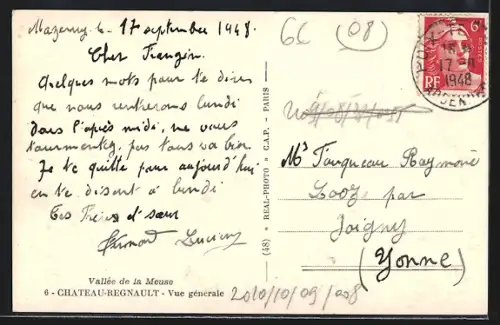 Mazerny le 17 septembre 1948.
Cher Frangin.
Quelques mots pour te dire
que nous rentrerons lundi
dans l'après midi, ne vous
tourmentez pas tout va bien
Je te quitte pour aujourd'hui
en te disant à lundi
Tes Frère et sœur
Fernand Lucienne
Vallée de la Meuse
6 - CHATEAU-REGNAULT - Vue générale
(48) ★ REAL-PHOTO ★ C.A.P. - PARIS
6C (08)
6F
RF
17 - 9
1948
Mr Tarqueau Raymond
par
Joigny
(Yonne)
2010/10/09/008